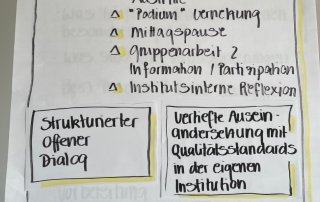 "Podium" Vernetzung
Mittagspause
Gruppenarbeit 2
Information / Partizipation
Institutsinterne Reflexion
Strukturierter
Offener
Dialog
Vertiefte Ausein-
andersetzung mit
Qualitätsstandards
in der eigenen
Institution